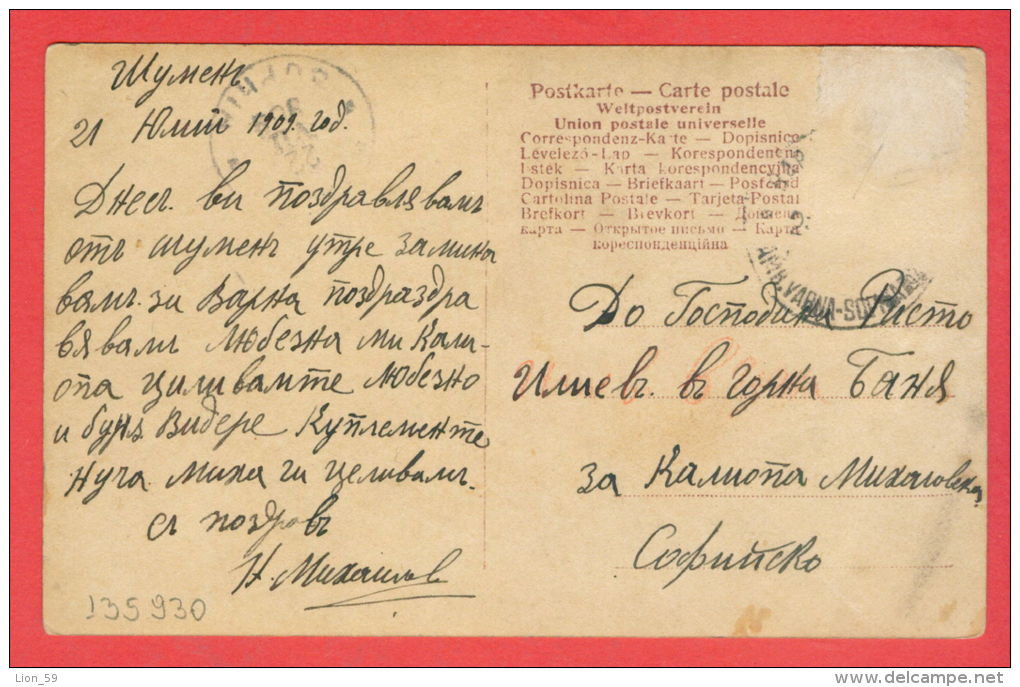 Шуменъ
21 Юлий 1909. год.
Днесъ ви поздравлявамъ
отъ шуменъ утре замина
вамъ за Варна поздраздра
вявамъ Любезна ми Кали-
опа целивамте любезно
и Видере Куплементе
Нуча Миха ги целивамъ.
съ поздравъ
Н. Михаилов
135930
Postkarte — Carte postale
Weltpostverein
Union postale universelle
Correspondenz-Karte — Dopisnice
Levelező-Lap — Korespondencni
listek — Karta korespondencyjna
Dopisnica — Briefkaart — Postcard
Cartolina Postale — Tarjeta-Postal
Brefkort — Brevkort — Дописна
карта — Открытое письмо — Карта
кореспонденційна
AMB. VARNA-SOF
До Господина Ристо
Илиевъ. въ Горна Баня
за Калиопа Михаловска
Софийско
Lion_59
www.delcampe.net